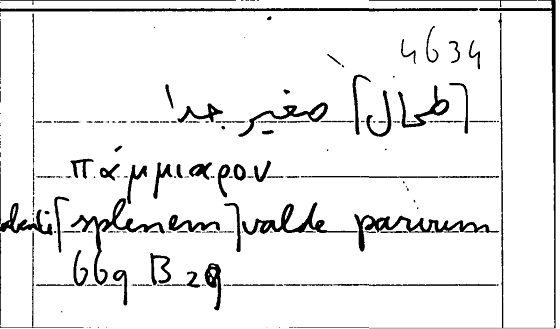 4634
[طحال] صغير جدا
πάμμικρον
[splenem] valde parvum
669 B 29